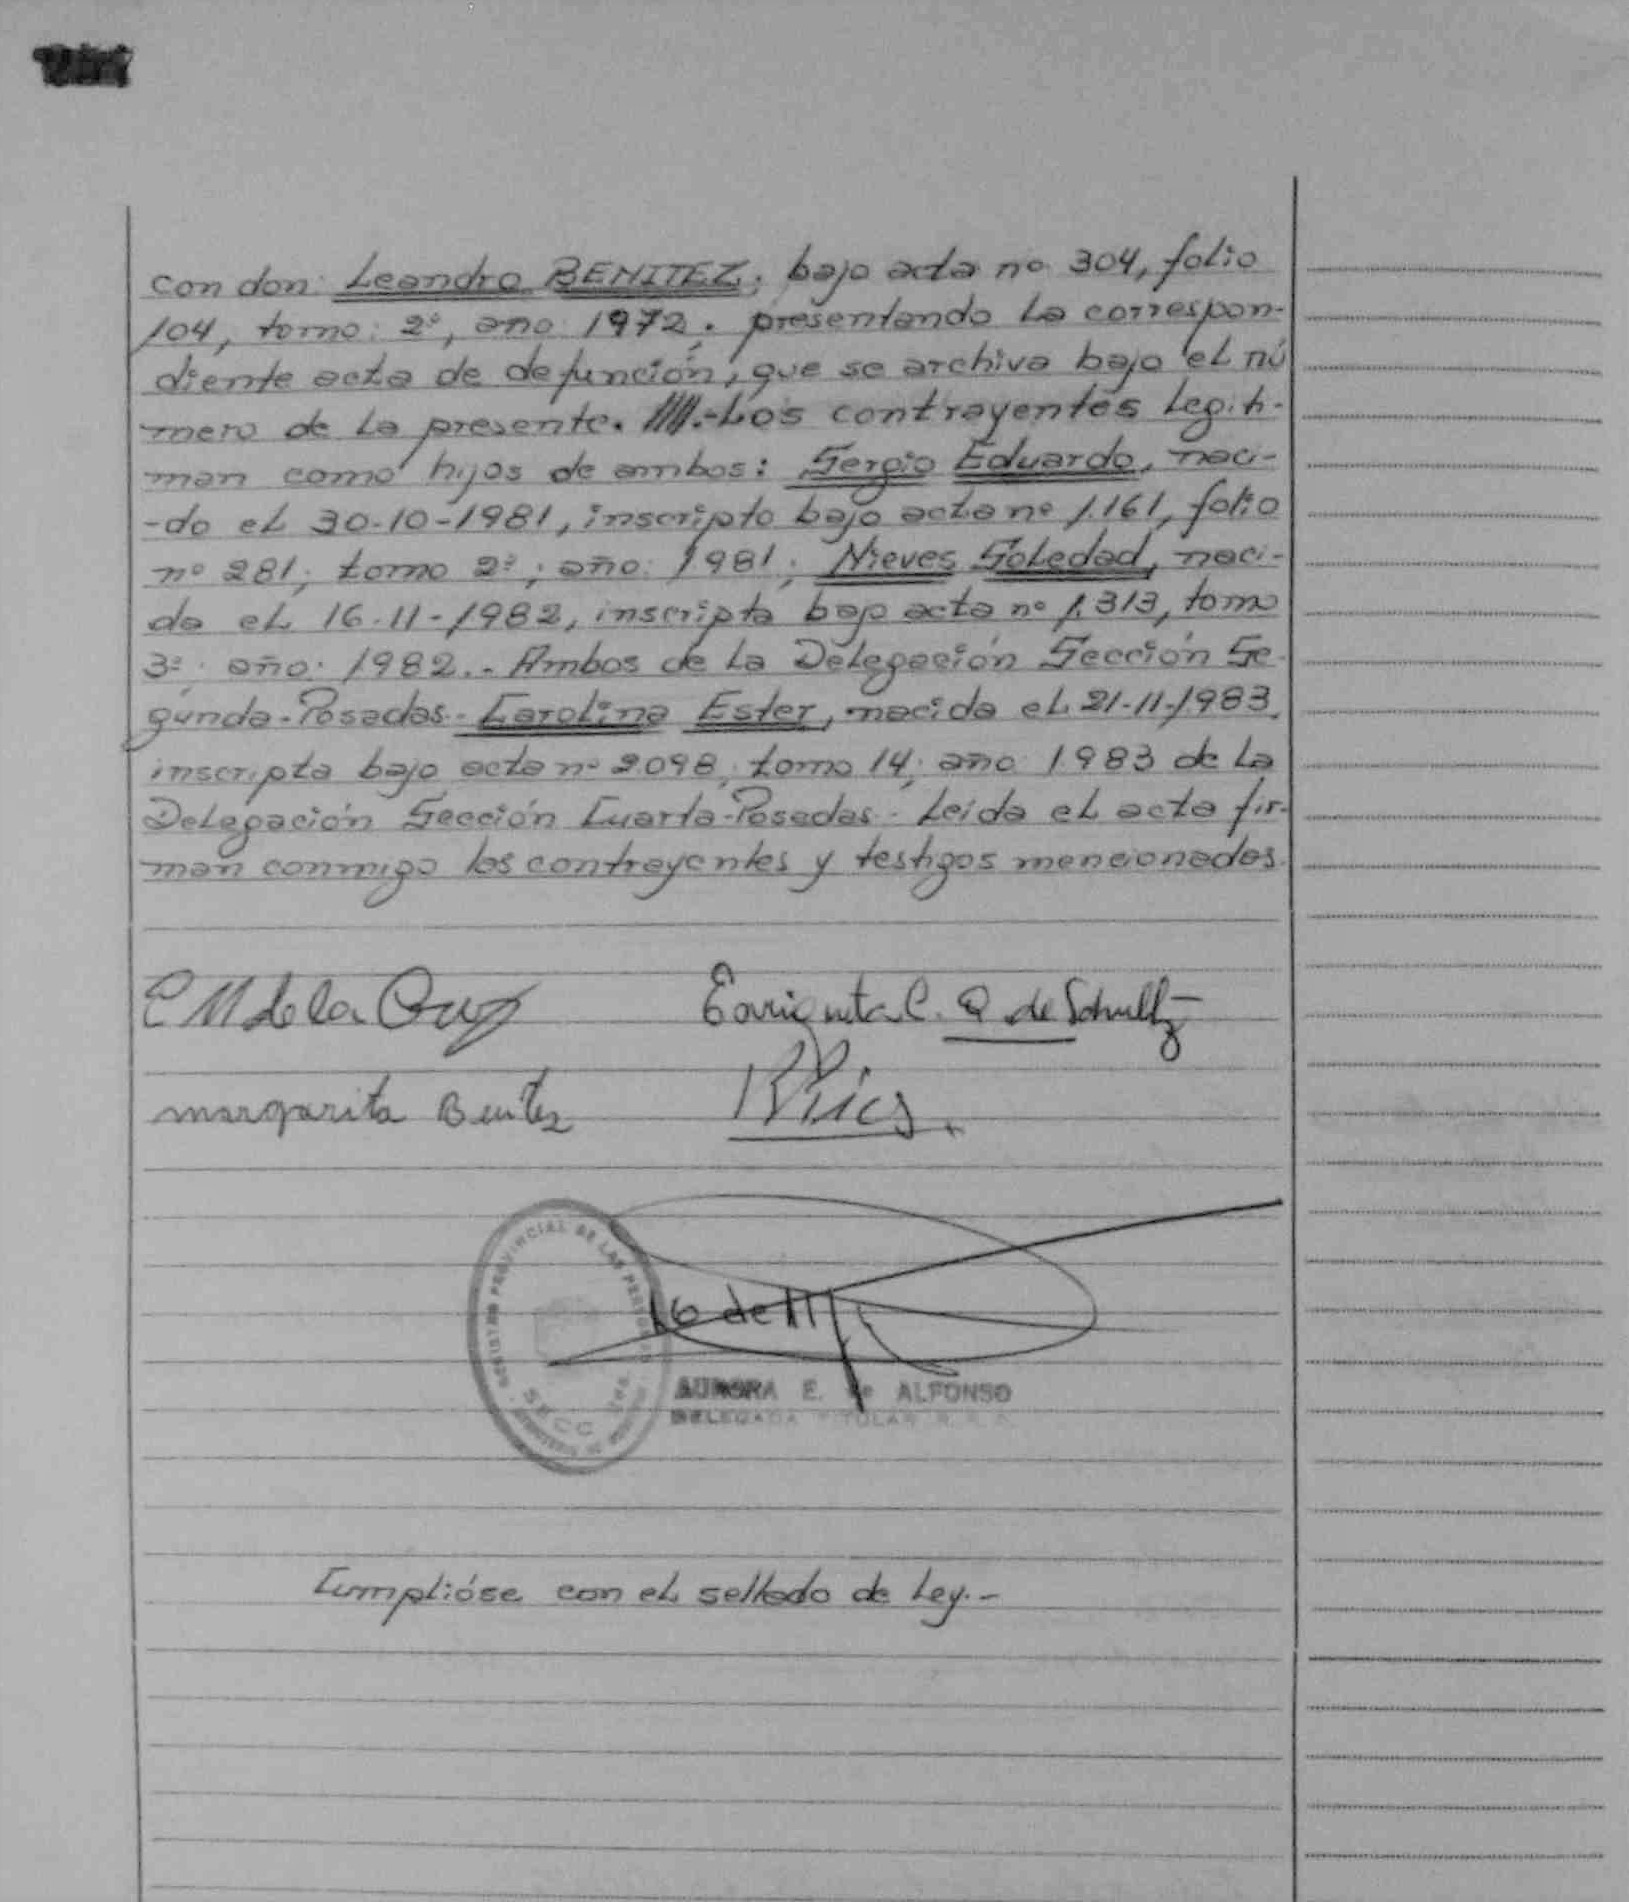 con don: Leandro BENITEZ; bajo acta nº 304, folio
104, tomo: 2º, año: 1972; presentando la correspon-
diente acta de defunción, que se archiva bajo el nú
mero de la presente. ////.-Los contrayentes legiti-
man como hijos de ambos: Sergio Eduardo, naci-
-do el 30-10-1981, inscripto bajo acta nº 1.161, folio
nº 281; tomo 2º; año: 1981; Nieves Soledad, naci-
da el 16-11-1982, inscripta bajo acta nº 1.313, tomo
3º. año: 1982.- Ambos de la Delegación Sección Se-
gunda-Posadas- Carolina Ester, nacida el 21-11-1983,
inscripta bajo acta nº 2098, tomo 14; año 1983 de la
Delegación Sección Cuarta-Posadas.- Leída el acta fir-
man conmigo los contrayentes y testigos mencionados.
E M de la Cruz
Enriqueta C. Q de Schultz
margarita Benitez
REGISTRO PROVINCIAL DE LAS PERSONAS
SECC
AURORA E. de ALFONSO
DELEGADA TITULAR
Cumplióse con el sellado de Ley.-